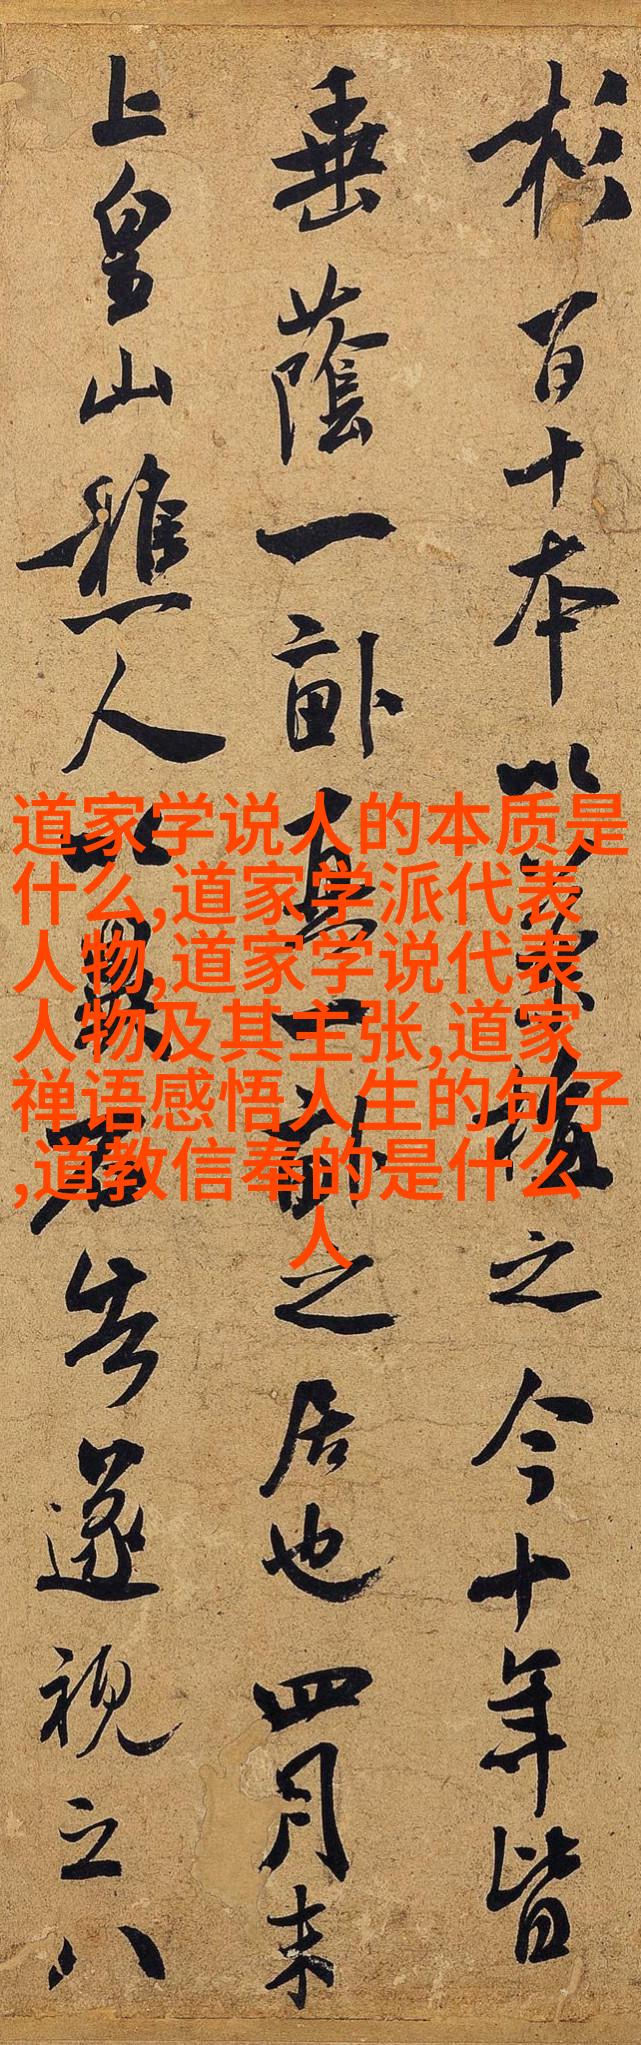 杉百十本以植之今十年皆
垂蔭一畝真一畝之居也四月末
上皇山樵人以異石告遂視之八
道家学说人的本质是
什么,道家学派代表
人物,道家学说代表
人物及其主张,道家
禅语感悟人生的句子
,道教信奉的是什么
人